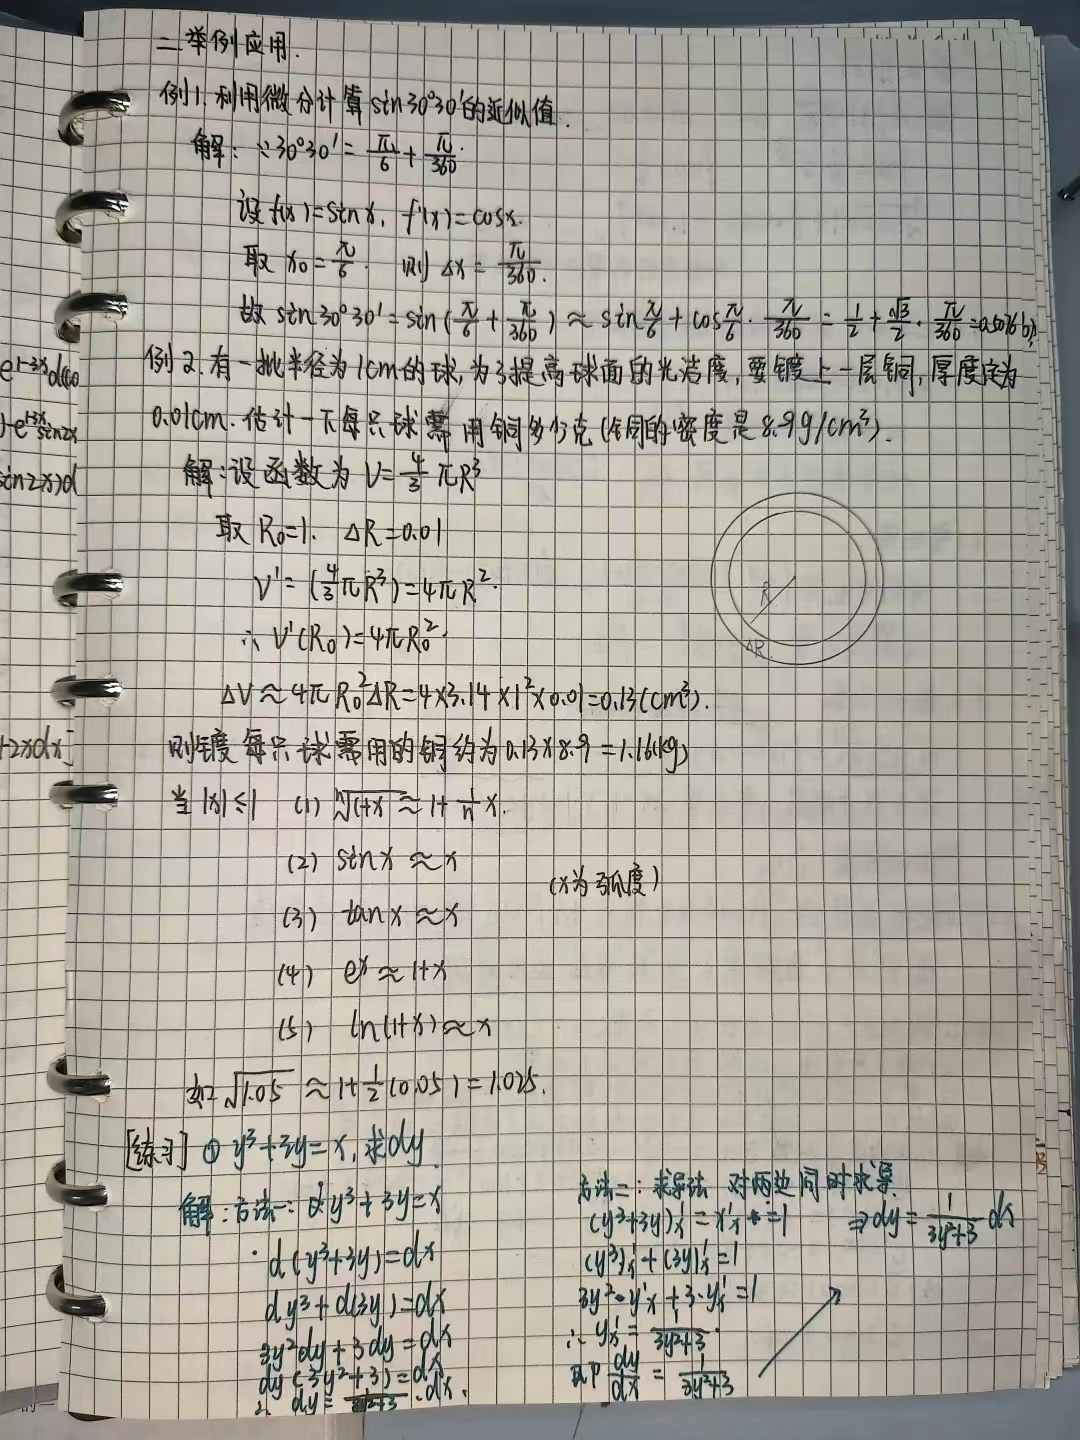 二举例应用.
例1.利用微分计算sin30°30′的近似值.
解:∵30°30′=π/6+π/360.
设f(x)=sinx, f′(x)=cosx.
取x₀=π/6. 则Δx=π/360.
故sin30°30′=sin(π/6+π/360)≈sinπ/6+cosπ/6·π/360=1/2+√3/2·π/360=0.5076
例2.有一批半径为1cm的球,为了提高球面的光洁度,要镀上一层铜,厚度定为
0.01cm.估计一下每只球需用铜多少克(铜的密度是8.9g/cm³).
解:设函数为V=4/3πR³
取R₀=1. ΔR=0.01
V′=(4/3πR³)=4πR².
∴V′(R₀)=4πR₀².
ΔV≈4πR₀²ΔR=4×3.14×1²×0.01=0.13(cm³).
则镀每只球需用的铜约为0.13×8.9=1.16(g)
当|x|≤1 (1) ⁿ√1+x≈1+1/n x.
(2) sinx≈x
(x为弧度)
(3) tanx≈x
(4) eˣ≈1+x
(5) ln(1+x)≈x
如√1.05≈1+1/2(0.05)=1.025.
[练习]①y³+3y=x,求dy.
解:方法一:y³+3y=x
d(y³+3y)=dx
dy³+d(3y)=dx
3y²dy+3dy=dx
dy(3y²+3)=dx
∴dy=1/3y²+3·dx.
方法二:求导法 对两边同时求导.
(y³+3y)′ₓ=x′ₓ=1
(y³)′ₓ+(3y)′ₓ=1
3y²·y′ₓ+3·y′ₓ=1
∴y′ₓ=1/3y²+3.
即dy/dx=1/3y²+3
⇒dy=1/3y²+3 dx
e¹⁻³ˣd(co
)-e¹⁻³ˣsin2x
sin2x)d
+2xdx]
R
ΔR